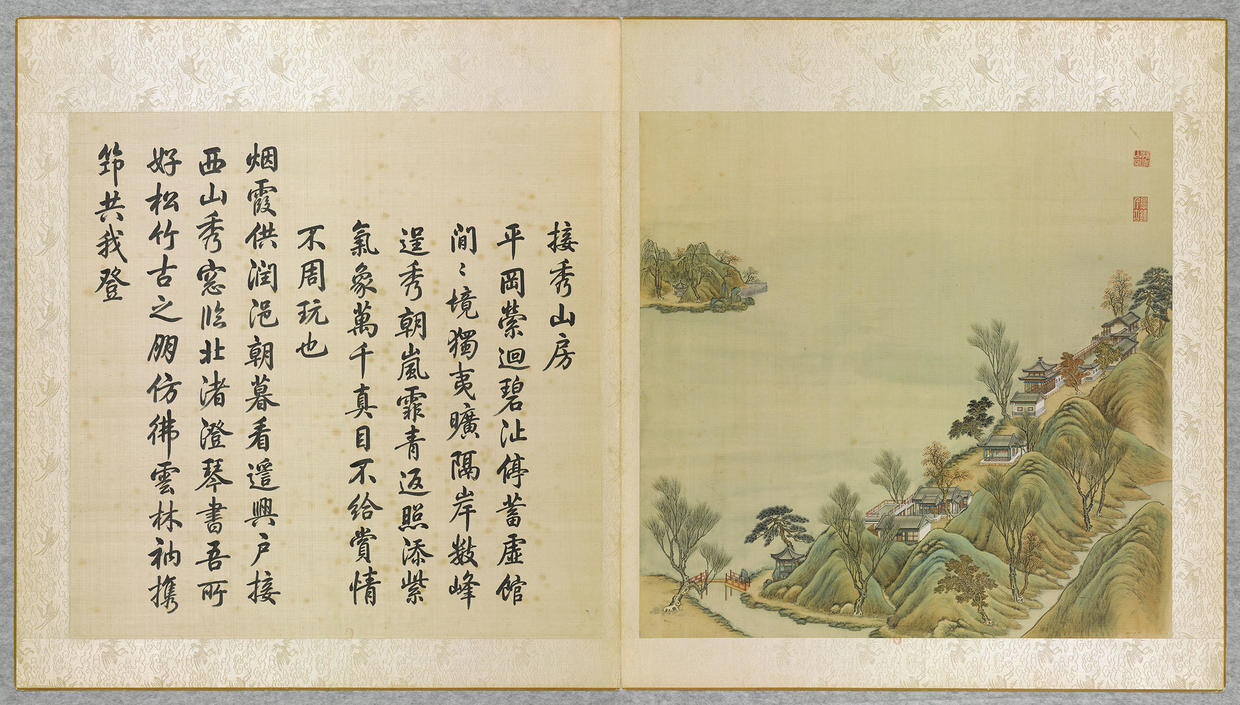 接秀山房
平岡縈迴碧沚停蓄虛館
閒〻境獨夷曠隔岸數峰
逞秀朝嵐霏青返照添紫
氣象萬千真目不給賞情
不周玩也
烟霞供潤浥朝暮看遥興户接
西山秀窓臨北渚澄琴書吾所
好松竹古之朋仿彿雲林衲携
筇共我登